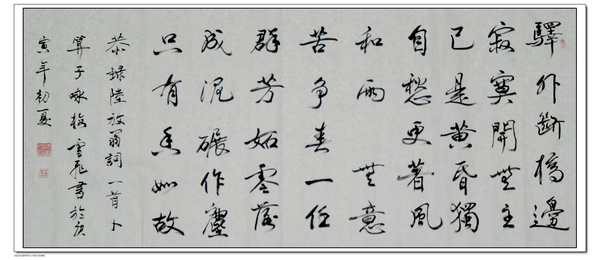 驛外斷橋邊
寂寞開無主
已是黃昏獨
自愁更著風
和雨 無意
苦爭春一任
群芳妬零落
成泥碾作塵
只有香如故
恭錄陸放翁詞一首卜
算子咏梅雪飛書於庚
寅年初夏